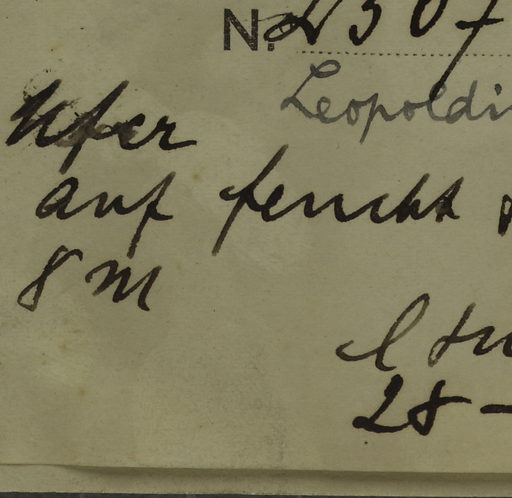 N. 2307
Leopoldi
Ufer
auf feucht
8 m
28 -